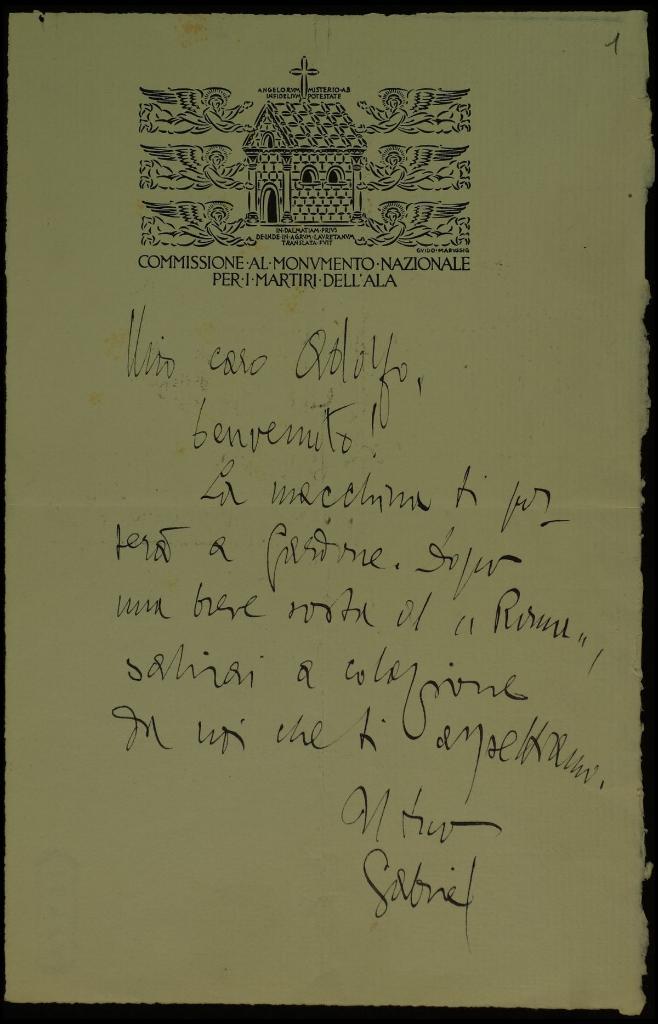 1
ANGELORVM MISTERIO·AB
INFIDELIVM POTESTATE
IN·DALMATIAM·PRIVS
DEINDE·IN·AGRVM·LAVRETANVM
TRANSLATA·FVIT
GUIDO·MARUSSIG
COMMISSIONE·AL·MONVMENTO·NAZIONALE
PER·I·MARTIRI·DELL'ALA
Mio caro Adolfo,
benvenuto!
La macchina ti por-
terà a Gardone. Dopo
una breve sosta al "Roma",
salirai a colazione
da noi che ti aspettiamo.
Il tuo
Gabriel